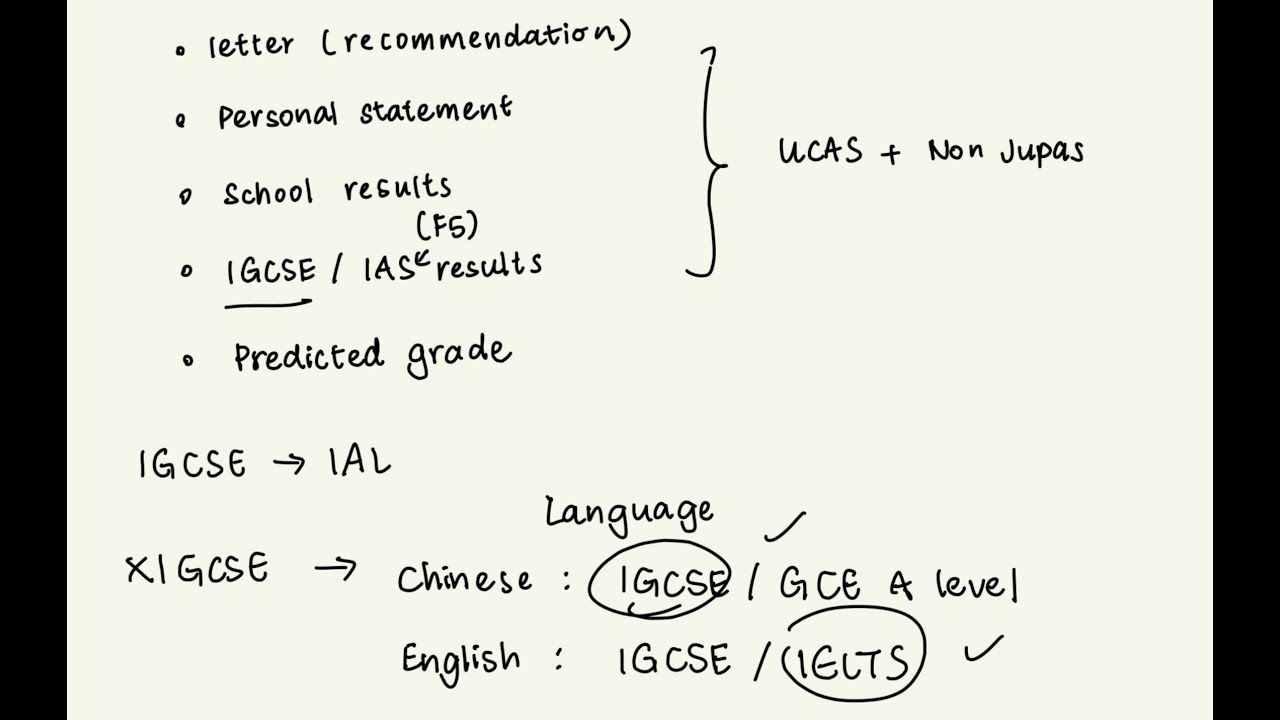 • letter (recommendation)
• Personal statement
UCAS + Non Jupas
• School results
(F5)
• IGCSE / IAS results
• Predicted grade
IGCSE → IAL
Language ✓
XIGCSE → Chinese : IGCSE / GCE A level
English : IGCSE / IELTS ✓